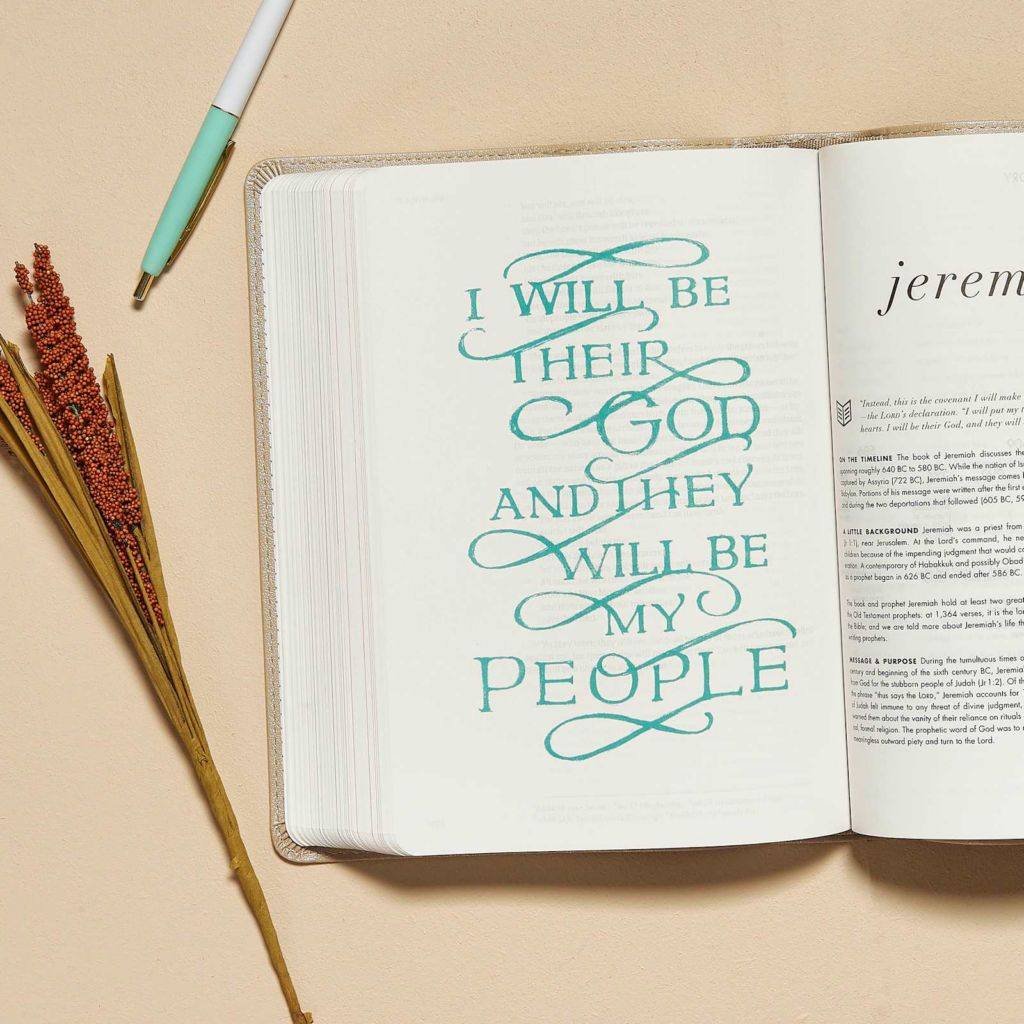 I WILL BE
THEIR
GOD
AND THEY
WILL BE
MY
PEOPLE
jerem
"Instead, this is the covenant I will make
—the LORD's declaration. "I will put my
hearts. I will be their God, and they will
ON THE TIMELINE The book of Jeremiah discusses the
spanning roughly 640 BC to 580 BC. While the nation of
captured by Assyria (722 BC), Jeremiah's message comes
Babylon. Portions of his message were written after the first
and during the two deportations that followed (605 BC,
A LITTLE BACKGROUND Jeremiah was a priest from
1:1), near Jerusalem. At the Lord's command, he
children because of the impending judgment that would
A contemporary of Habakkuk and possibly
as a prophet began in 626 BC and ended after 586 BC.
The book and prophet Jeremiah hold at least two
the Old Testament prophets: at 1,364 verses, it is the
the Bible; and we are told more about Jeremiah's life
writing prophets.
MESSAGE & PURPOSE During the tumultuous times
century and beginning of the sixth century BC,
from God for the stubborn people of Judah (Jr 1:2). Of
the phrase "thus says the LORD," Jeremiah accounts for
of Judah felt immune to any threat of divine judgment,
warned them about the vanity of their reliance on rituals
formal religion. The prophetic word of God was to
meaningless outward piety and turn to the Lord.